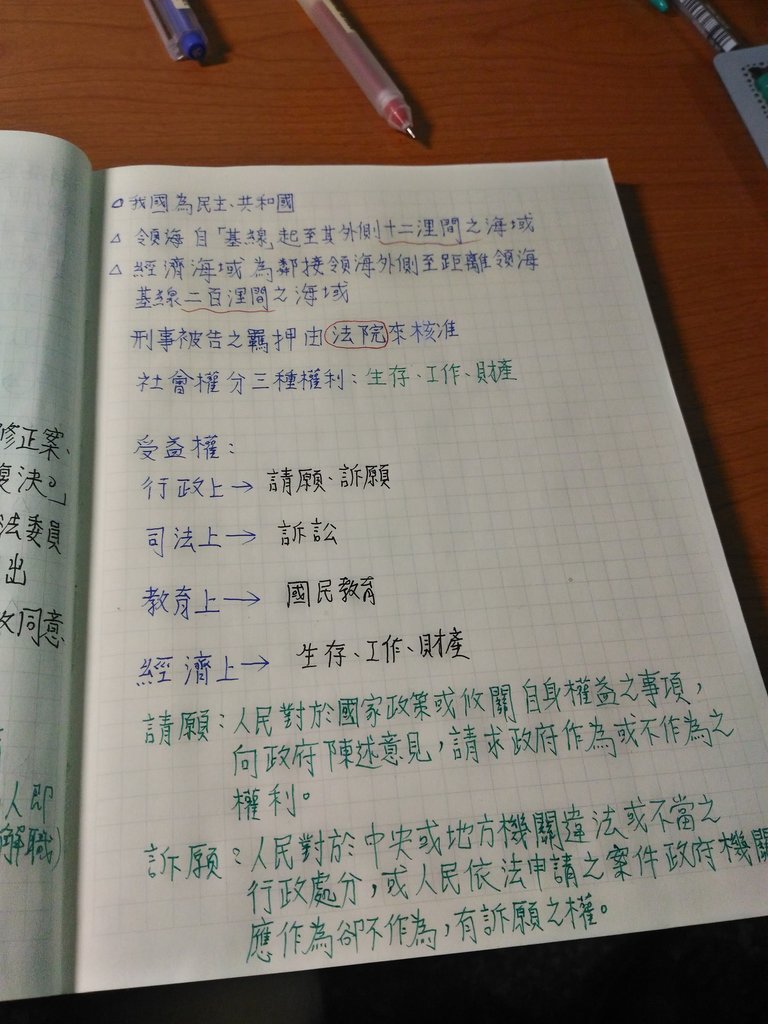 我國為民主、共和國
△ 領海自「基線」起至其外側十二浬間之海域
△ 經濟海域為鄰接領海外側至距離領海
基線二百浬間之海域
刑事被告之羈押由法院來核准
社會權分三種權利：生存、工作、財產
受益權：
行政上→ 請願、訴願
司法上→ 訴訟
教育上→ 國民教育
經濟上→ 生存、工作、財產
請願：人民對於國家政策或攸關自身權益之事項，
向政府陳述意見，請求政府作為或不作為之
權利。
訴願：人民對於中央或地方機關違法或不當之
行政處分，或人民依法申請之案件政府機關
應作為卻不作為，有訴願之權。
修正案、
複決」
法委員
出
同意
人即
解職)